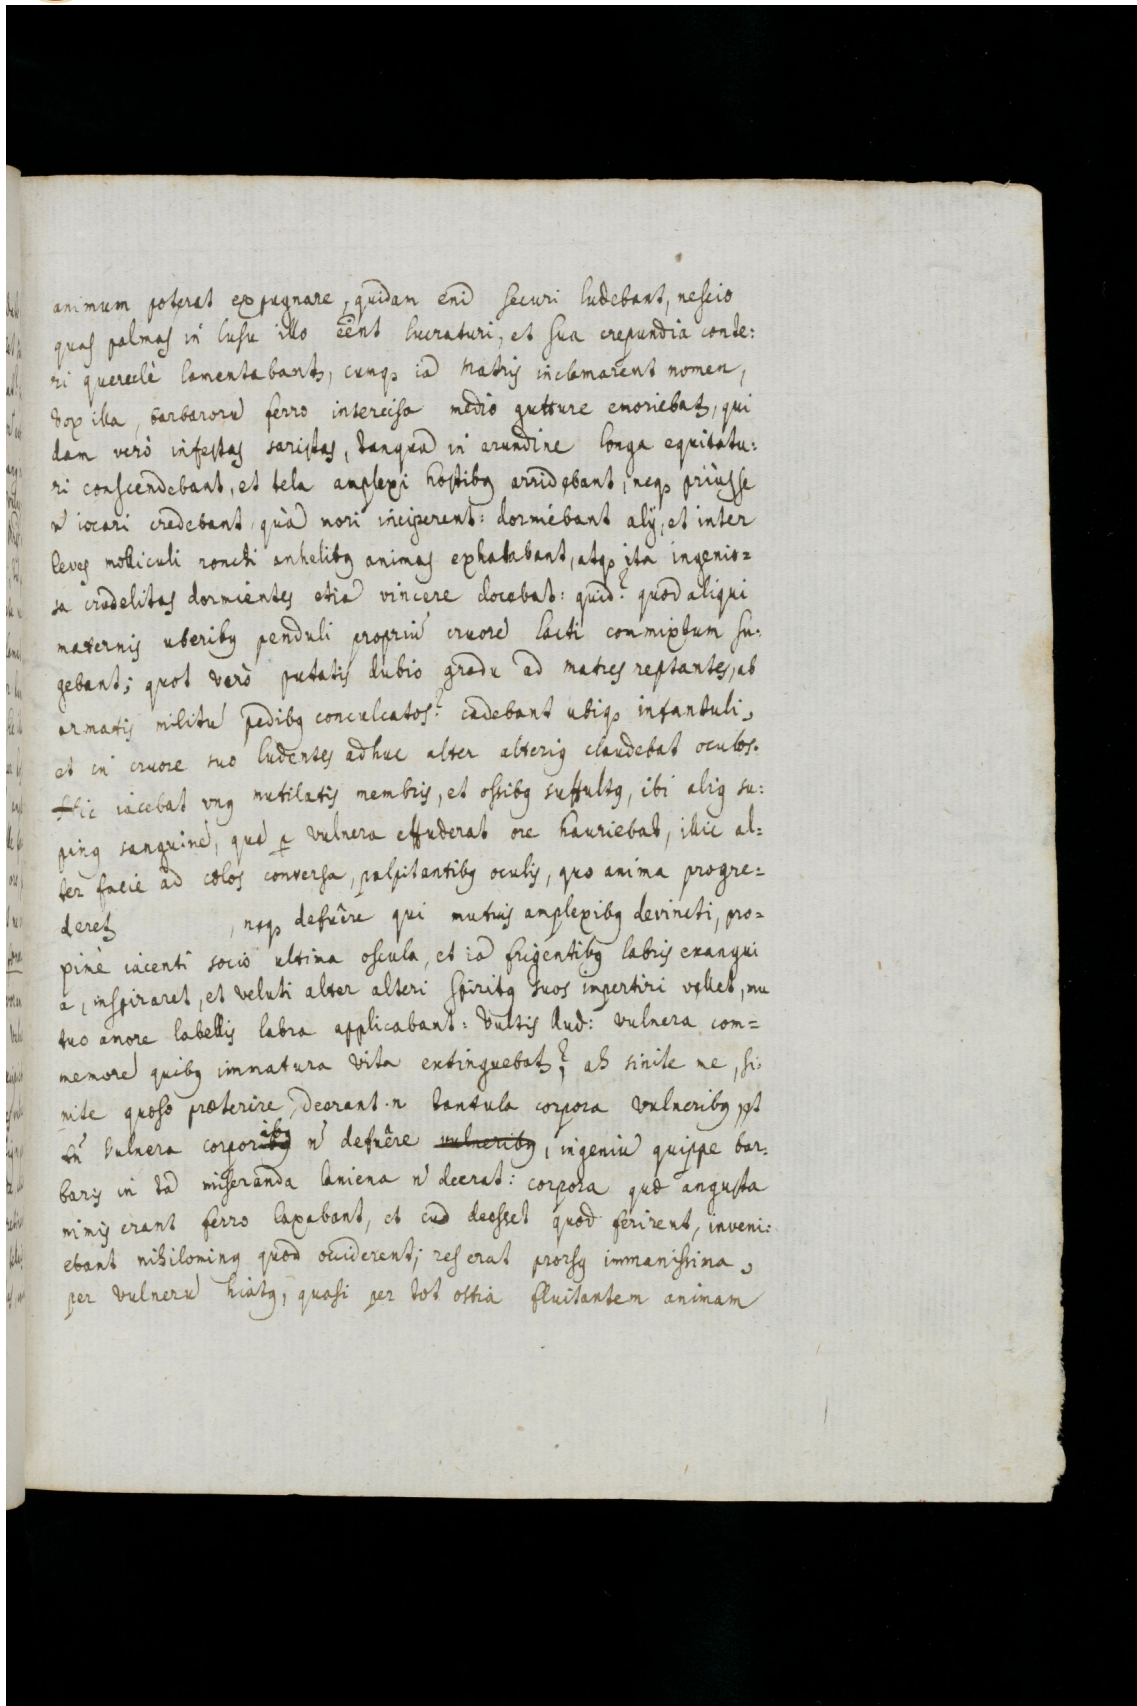 animum poterat expugnare, quidam enĩ securi ludebant, nescio
quas palmas in lusu illo eẽnt lucraturi, et sua crepundia conte:
ri querulè lamentabantꝫ, cumqꝫ iã Matris inclamarent nomen,
vox illa, barbarorũ ferro intercisa medio gutture emoriebatꝫ, qui
dam verò infestas saristas, tanquã in arundine longa equitatu:
ri conscendebant, et tela amplexi hostibꝰ arridebant, neqꝫ priùs se
ñ iocari credebant quã mori inciperent: dormiebant alÿ, et inter
leves molliculi ronchi anhelibꝰ animas exhalabant, atqꝫ ita ingenio=
sa crudelitas dormientes etiã vincere docebat: quid? quod aliqui
maternis uberibꝰ penduli propriũ cruorẽ lacti commixtum su:
gebant; quot verò putatis dubio gradu ad matres reptantes, ab
armatis militũ pedibꝰ conculcatos? cadebant ubiqꝫ infantuli,
et in cruore suo ludentes adhuc alter alteriꝰ claudebat oculos.
Hic iacebat vnꝰ mutilatis membris, et ossibꝰ suffultꝰ, ibi aliꝰ su:
pinꝰ sanguinẽ, quẽ ꝑ vulnera effuderat ore hauriebat, illic al=
ter facie ad cœlos conversa, palpitantibꝰ oculis, quo anima progre=
deretꝫ , neqꝫ defuêre qui mutuis amplexibꝰ devincti, pro=
pinè iacenti socio ultima oscula, et iã frigentibꝰ labris exangui
a, inspiraret, et veluti alter alteri spiritꝰ suos impertiri vellet, mu
tuo amore labellis labra applicabant: Vultis  vulnera com=
memorẽ quibꝰ immatura vita extinguebatꝫ? ah sinite me, si:
nite quæso præterire, deerant .n. tantula corpora vulneribꝰ, et
tñ vulnera corporibꝰ ñ defuêre vulneribꝰ, ingeniũ quippe bar:
baris in tã miseranda laniena ñ deerat: corpora quæ angusta
nimis erant ferro laxabant, et cũ deesset quod ferirent, inveni:
ebant nihilominꝰ quod occiderent; res erat prorsꝰ immanissima,
per vulnerũ hiatꝰ, quasi per tot ostia fluitantem animam